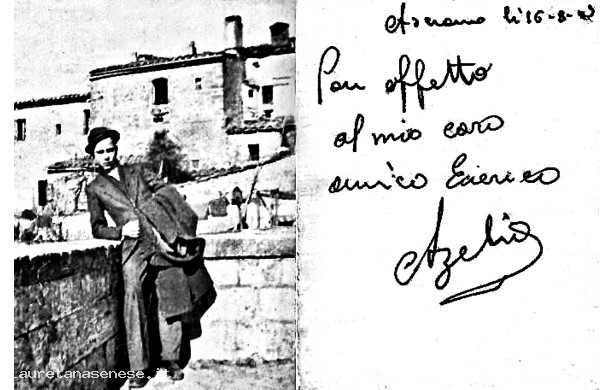 Asciano li 16-8-
Con affetto
al mio caro
amico Enrico
Azelio
lauretanasenese.it